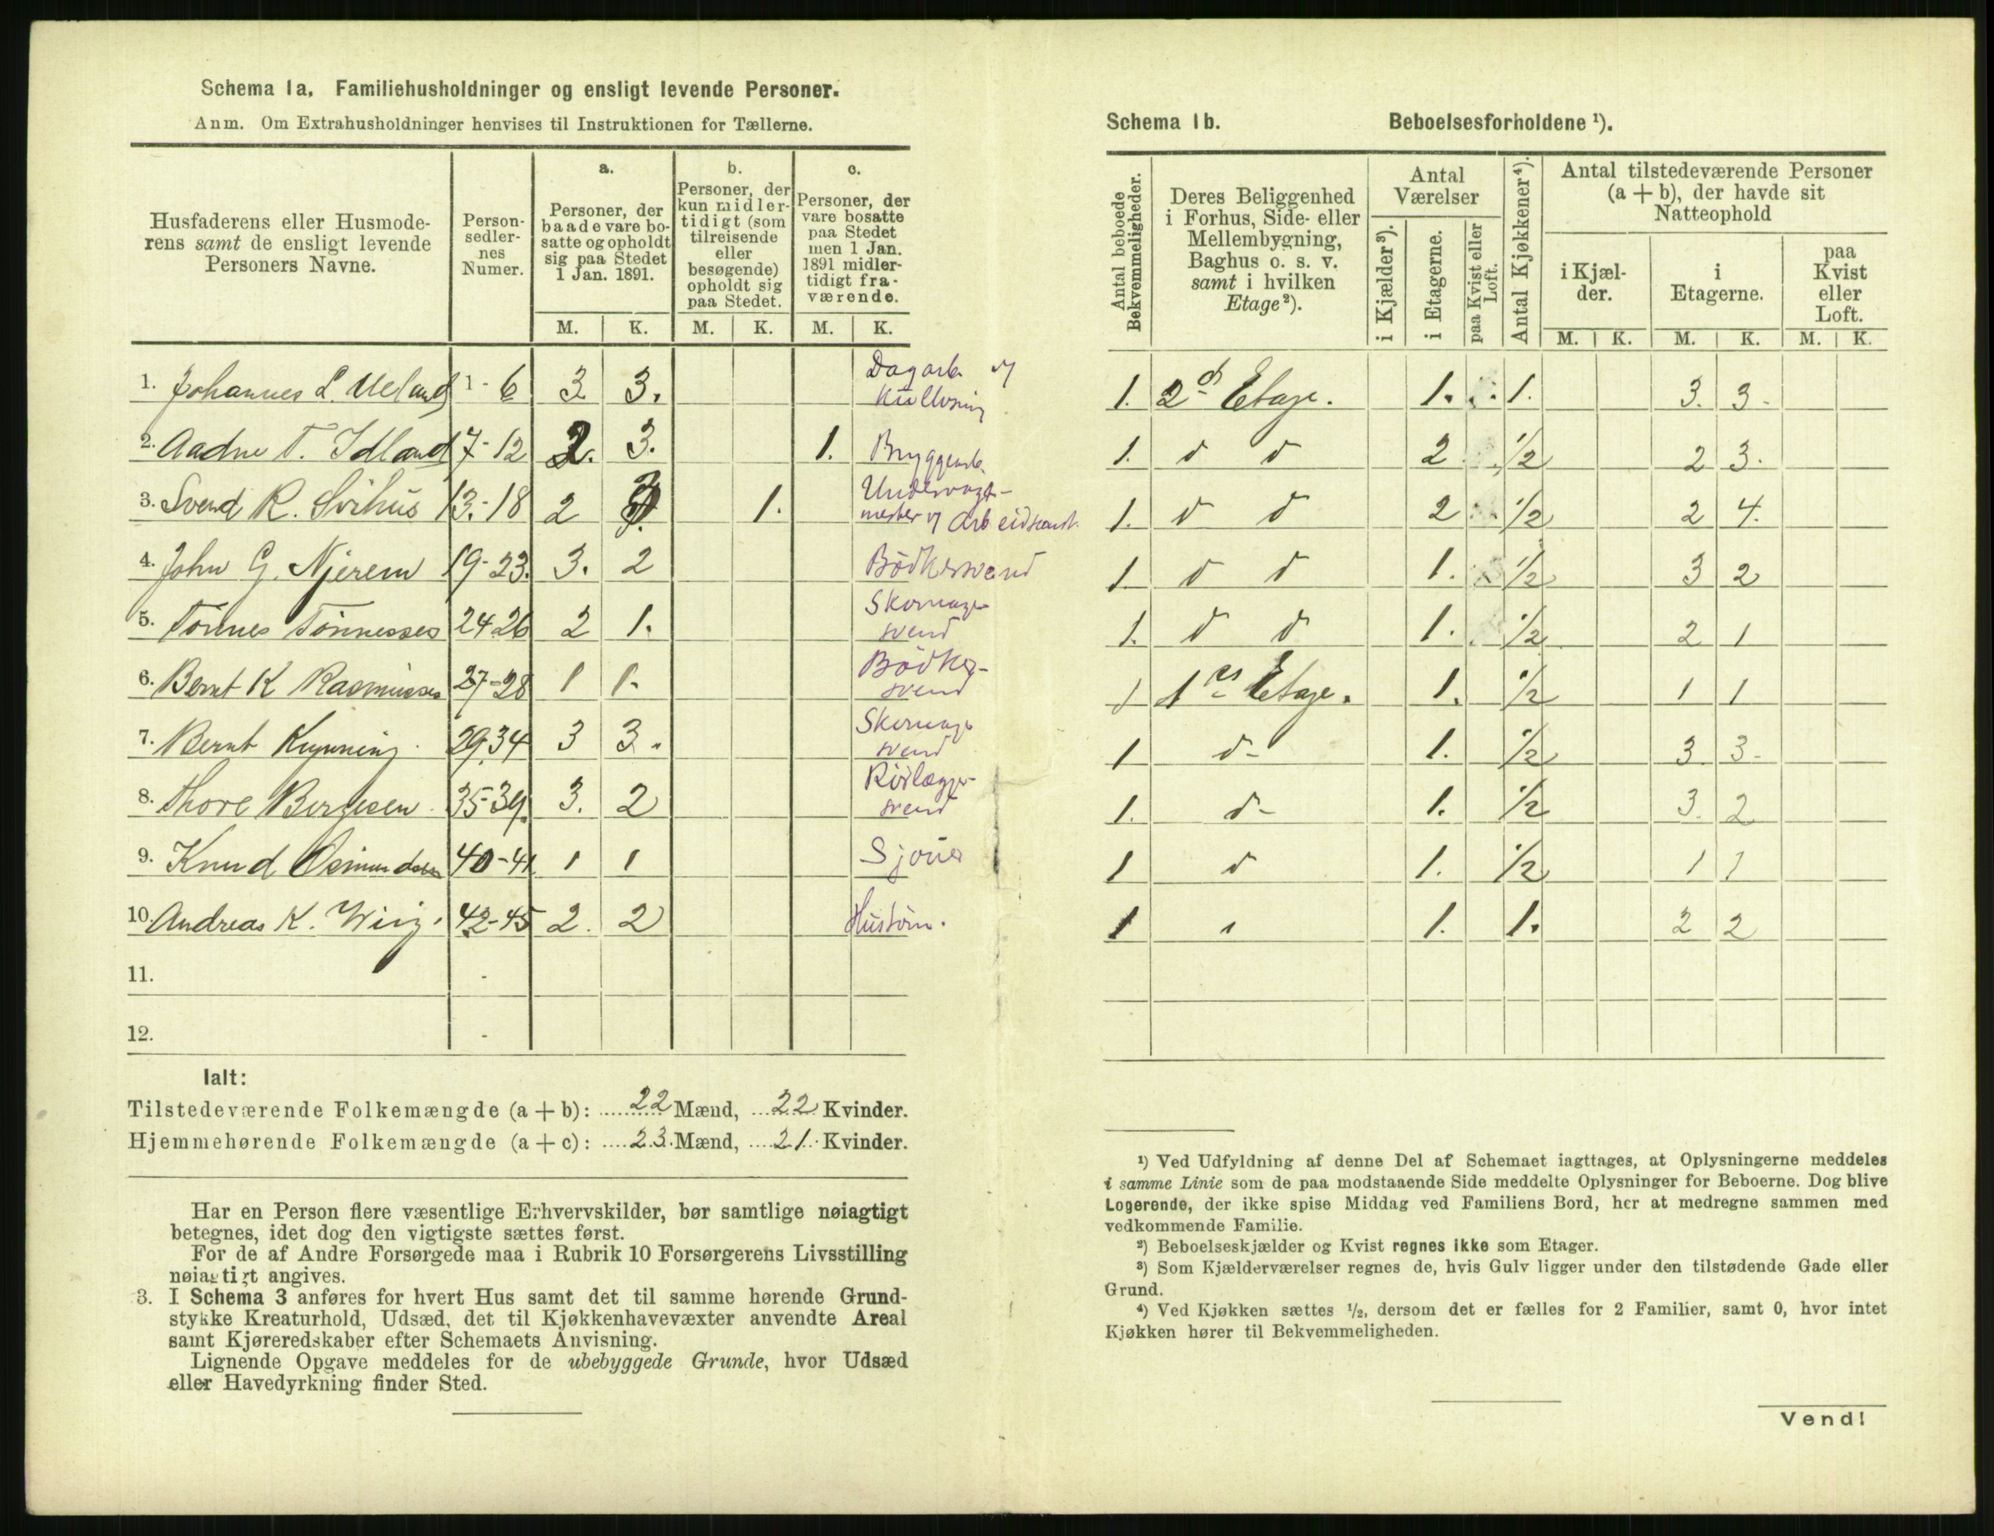 Schema 1a. Familiehusholdninger og ensligt levende Personer.
Anm. Om Extrahusholdninger henvises til Instruktionen for Tællerne.
Husfaderens eller Husmode-
rens samt de ensligt levende
Personers Navne.
Person-
sedler-
nes
Numer.
a.
Personer, der
baade vare bo-
satte og opholdt
sig paa Stedet
1 Jan. 1891.
b.
Personer, der
kun midler-
tidigt (som
tilreisende
eller
besøgende)
opholdt sig
paa Stedet.
c.
Personer, der
vare bosatte
paa Stedet
men 1 Jan.
1891 midler-
tidigt fra-
værende.
M. K. M. K. M. K.
1. Johannes L. Ueland 1-6 3 3. Dagarb. og
2. Aadne T. Idland 7-12 2. 3. 1. Bryggearb.
3. Svend R. Svihus 13.-18 2 1. Undervagt-
mester og Arbeidsmand
4. John G. Njerem 19-23. 3. 2 Bödkersvend
5. Tönnes Tönnessen 24 26 2 1. Skomager
svend
6. Bernt K Rasmussen 27-28 1 1. Bödker-
svend
7. Bernt 29.34 3 3. Skomager
svend
8. Thore Bergesen 35-39. 3. 2 Rörlægger-
svend
9. Knud Osmundsen 40-41 1 1 Sjouer
10. Andreas K. Wiig. 42-45 2. 2
11.
12.
Ialt:
Tilstedeværende Folkemængde (a + b): 22 Mænd, 22 Kvinder.
Hjemmehørende Folkemængde (a + c): 23. Mænd, 21 Kvinder.
Har en Person flere væsentlige Erhvervskilder, bør samtlige nøiagtigt
betegnes, idet dog den vigtigste sættes først.
For de af Andre Forsørgede maa i Rubrik 10 Forsørgerens Livsstilling
nøiagtigt angives.
3. I Schema 3 anføres for hvert Hus samt det til samme hørende Grund-
stykke Kreaturhold, Udsæd, det til Kjøkkenhavevæxter anvendte Areal
samt Kjøreredskaber efter Schemaets Anvisning.
Lignende Opgave meddeles for de ubebyggede Grunde, hvor Udsæd
eller Havedyrkning finder Sted.
Schema 1b. Beboelsesforholdene ¹).
Antal beboede
Bekvemmeligheder.
Deres Beliggenhed
i Forhus, Side- eller
Mellembygning,
Baghus o. s. v.
samt i hvilken
Etage²).
Antal
Værelser
i Kjælder³).
i Etagerne.
paa Kvist eller
Loft.
Antal Kjøkkener⁴).
Antal tilstedeværende Personer
(a + b), der havde sit
Natteophold
i Kjæl-
der.
i
Etagerne.
paa
Kvist
eller
Loft.
M. K. M. K. M. K.
1. 2d Etage. 1. 1. 3. 3.
1. d d 2 1/2 2 3.
1. d d 2 1/2 2 4.
1 d d 1. 1/2 3 2
1. d d 1. 1/2 2 1
1 1ste Etage. 1. 1/2 1 1
1 d- 1. 1/2 3 3.
1. d- 1. 1/2 3. 2
1 d 1. 1/2 1 1
1 1. 1. 2 2
¹) Ved Udfyldning af denne Del af Schemaet iagttages, at Oplysningerne meddeles
i samme Linie som de paa modstaaende Side meddelte Oplysninger for Beboerne. Dog blive
Logerende, der ikke spise Middag ved Familiens Bord, her at medregne sammen med
vedkommende Familie.
²) Beboelseskjælder og Kvist regnes ikke som Etager.
³) Som Kjælderværelser regnes de, hvis Gulv ligger under den tilstødende Gade eller
Grund.
⁴) Ved Kjøkken sættes ¹/₂, dersom det er fælles for 2 Familier, samt 0, hvor intet
Kjøkken hører til Bekvemmeligheden.
Vend!